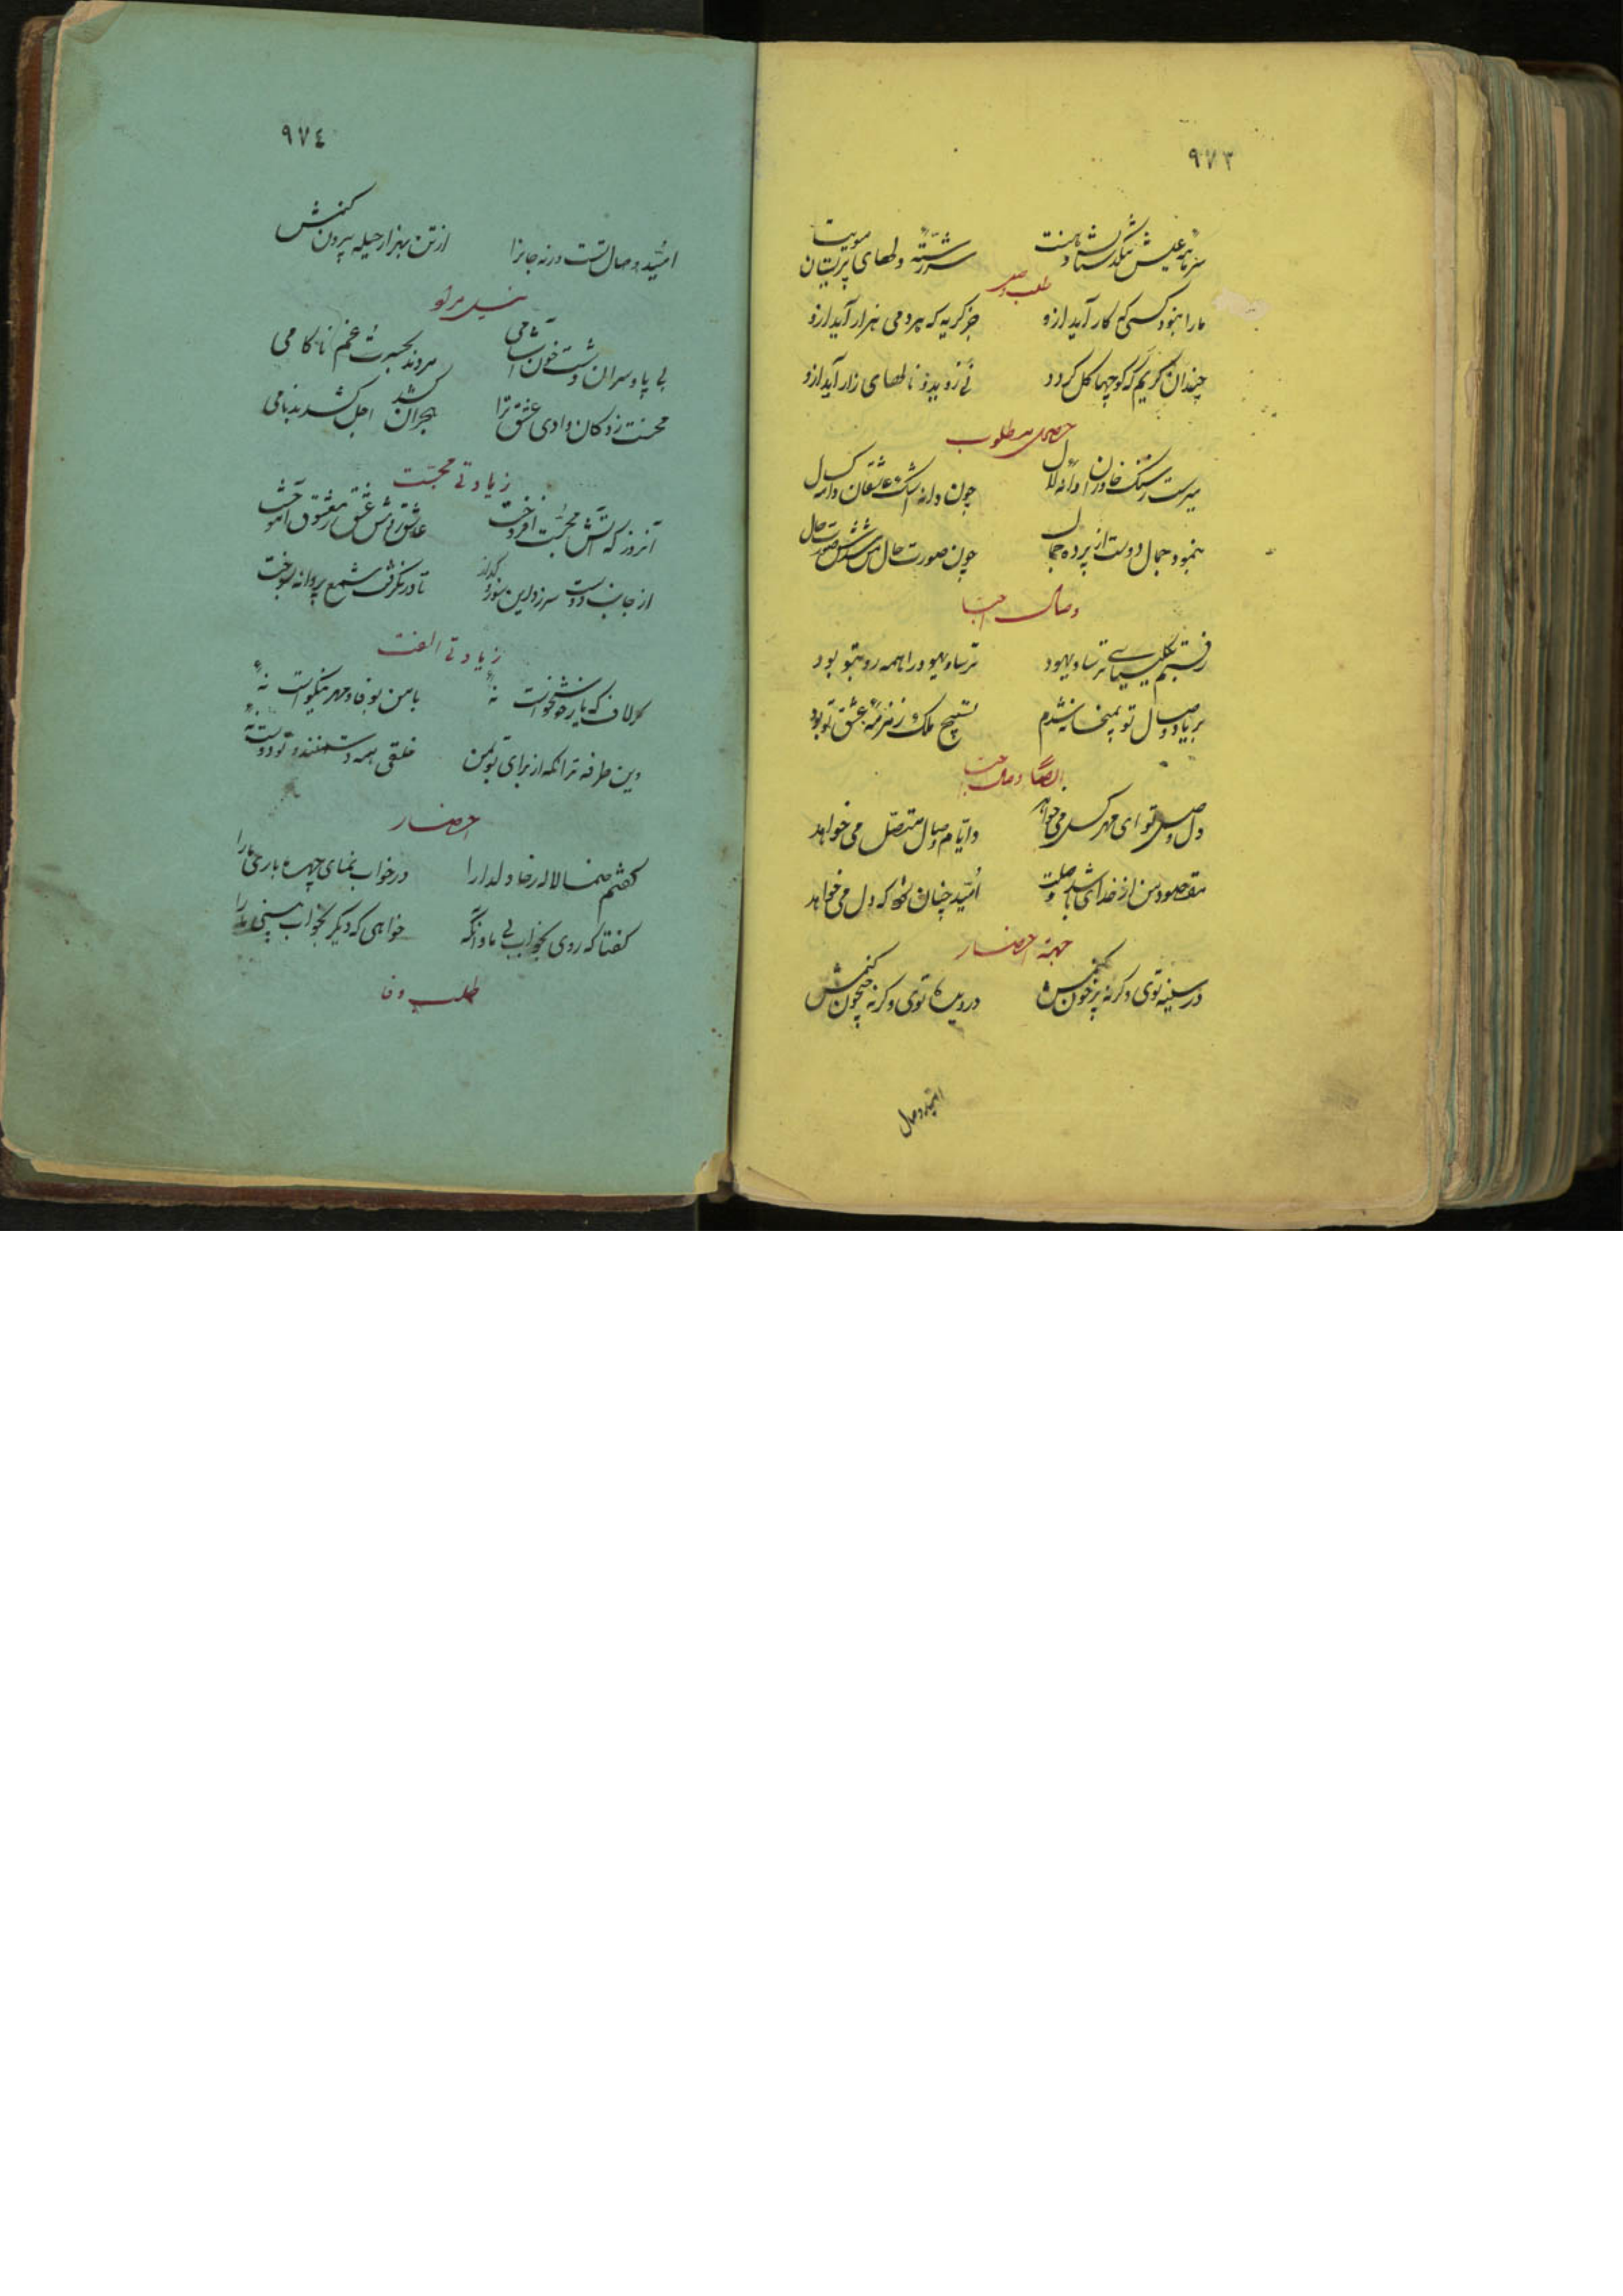 ٩٧٣
سرمایه عیش تنگدستان دهنت سررشته دلهای پریشان مویت
طلب وصل
ما را نبود کسی که کار آید ازو جز گریه که هر دمی هزار آید ازو
چندان گریم که کوچها گل گردد نی روید و نالهای زار آید ازو
مطلوب
چون دانه اشک عاشقان در
بنمود جمال دوست از پرده جمال چون صورت حال من شدش صورت حال
وصال احبا
رفتم بکلیسیای ترسا و یهود ترسا و یهود را همه رو بتو بود
بر یاد وصال تو بمیخانه شدم تسبیح ملک زمزمه عشق تو بود
ایضا وصال احبا
دل وصل تو ای مهر گسل می خواهد وایام وصال متصل می خواهد
مقصود من از خدای باشد وصلت امید چنان شود که دل می خواهد
جهة احضار
در سینه توی وگرنه پرخون کنمش در دیده توی وگرنه جیحون کنمش
امید وصال
٩٧٤
امید وصال تست ورنه جانرا از تن بهزار حیله بیرون کنمش
نیل مراد
بی پا و سران دشت خون آشامی مردند بحسرت و غم ناکامی
محنت زدگان وادی عشق ترا هجران کشد اجل کشد بدنامی
زیادتی محبت
آنروز که آتش محبت افروخت عاشق روش عشق ز معشوق آموخت
از جانب دوست سرزد این سوز و گداز تا در نگرفت شمع پروانه نسوخت
زیادتی الفت
گر لاف که یار خوشخوست نه با من بوفا و مهر نیکوست نه
وین طرفه ترا که از برای تو بمن خلقی همه دشمنند و تو دوست نه
احضار
گفتم صنما لاله رخا دلدارا در خواب نمای چهره باری یارا
گفتا که روی بخواب بی ما وانگه خواهی که دیگر بخواب بینی ما را
طلب وفا